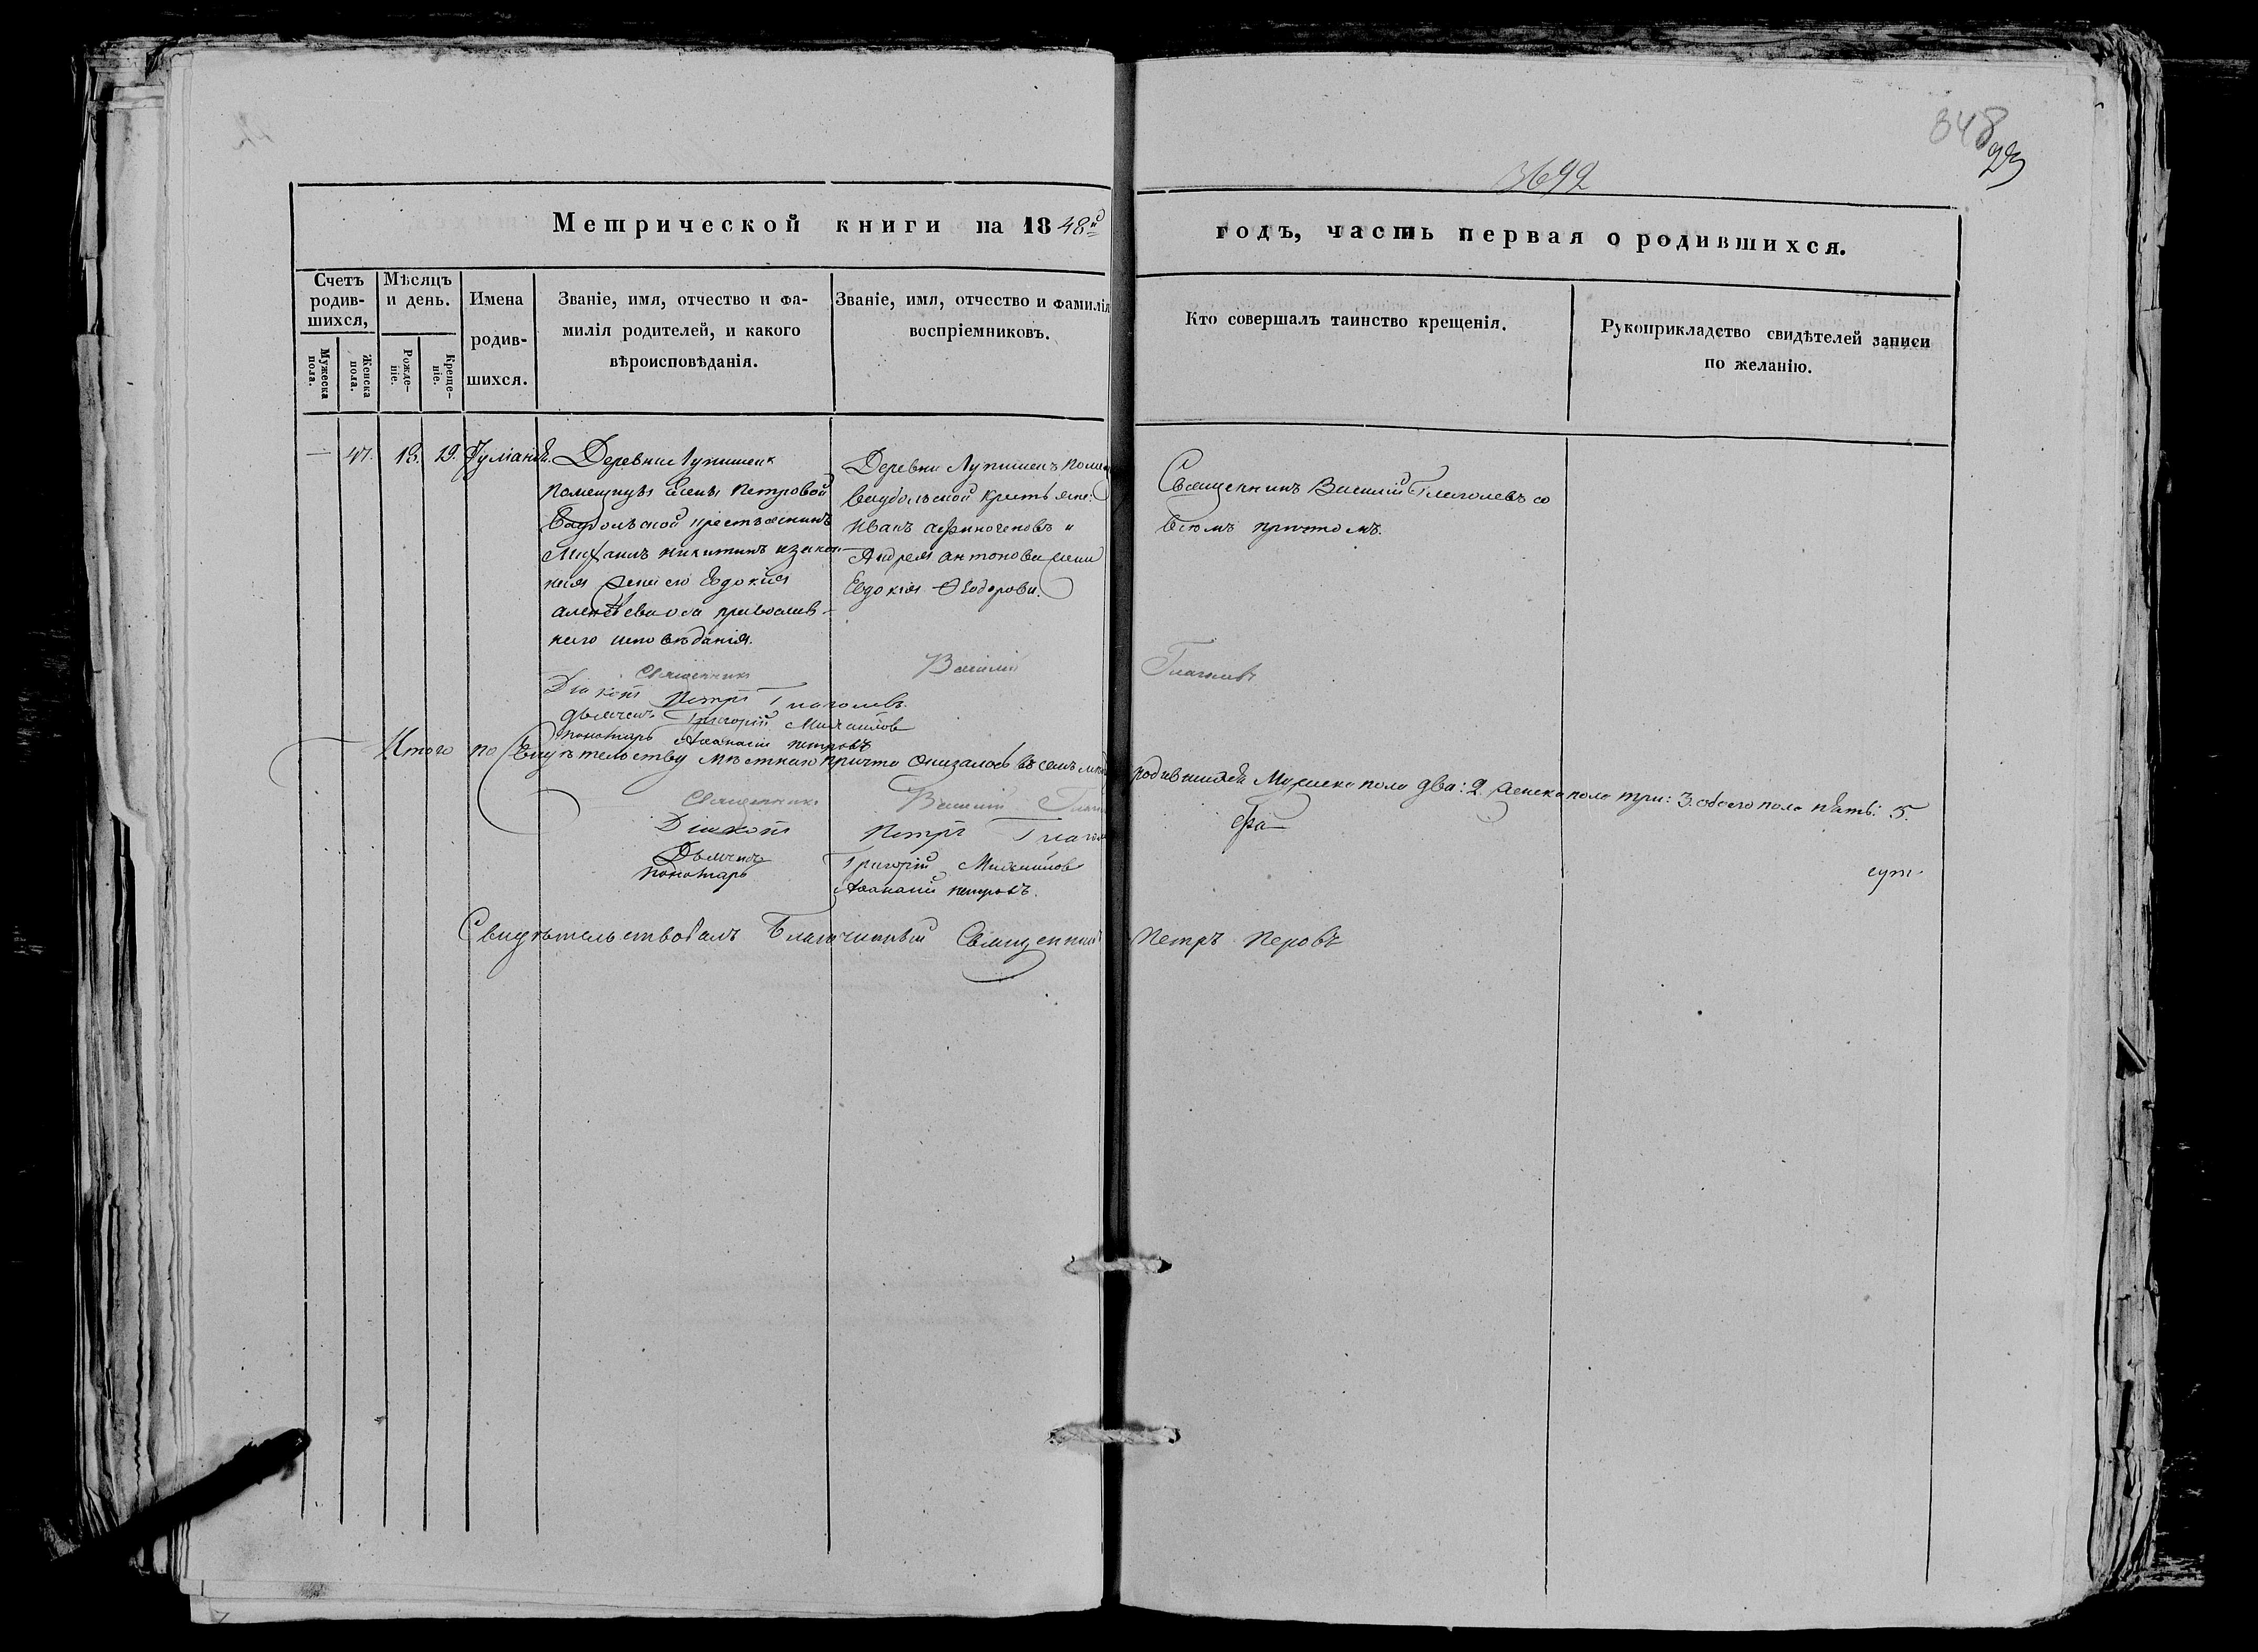 348
23
3692
Метрической книги на 1848й годъ, часть первая о родившихся.
Счетъ родившихся,
Мужеска пола.
Женска пола.
Мѣсяцъ и день.
Рожденіе.
Крещеніе.
Имена родившихся.
Званіе, имя, отчество и фамилія родителей, и какого вѣроисповѣданія.
Званіе, имя, отчество и фамилія воспріемниковъ.
Кто совершалъ таинство крещенія.
Рукоприкладство свидѣтелей записи по желанію.
47. 18. 19. Іуліанія.
Деревни
помещицы Елены Петровой
крестьянинъ
Михаилъ Никитинъ и закон
ная жена его Евдокія
Алексѣева оба православ-
наго исповѣданія.
Деревни Лупишекъ помещ
крестьяне:
Иванъ Афиногеновъ и
Андрея Антонова жена
Евдокія Ѳеодорова.
Священникъ Василій Глаголевъ со
всемъ причтомъ.
Священникъ Василій Глаголевъ
Діаконъ Петръ Глаголевъ
Дьячекъ Григорій Михайловъ
Пономарь Аѳанасій Петровъ
Итого по свидѣтельству мѣстнаго причта оказалось въ семъ родившихся Мужеска пола два: 2. Женска пола три: 3. обоего пола пять: 5.
Священникъ Василій
Діаконъ Петръ
Дьячекъ Григорій Михайловъ
Пономарь Аѳанасій Петровъ.
Свидѣтельствовалъ Благочинный Священникъ Петръ Перовъ